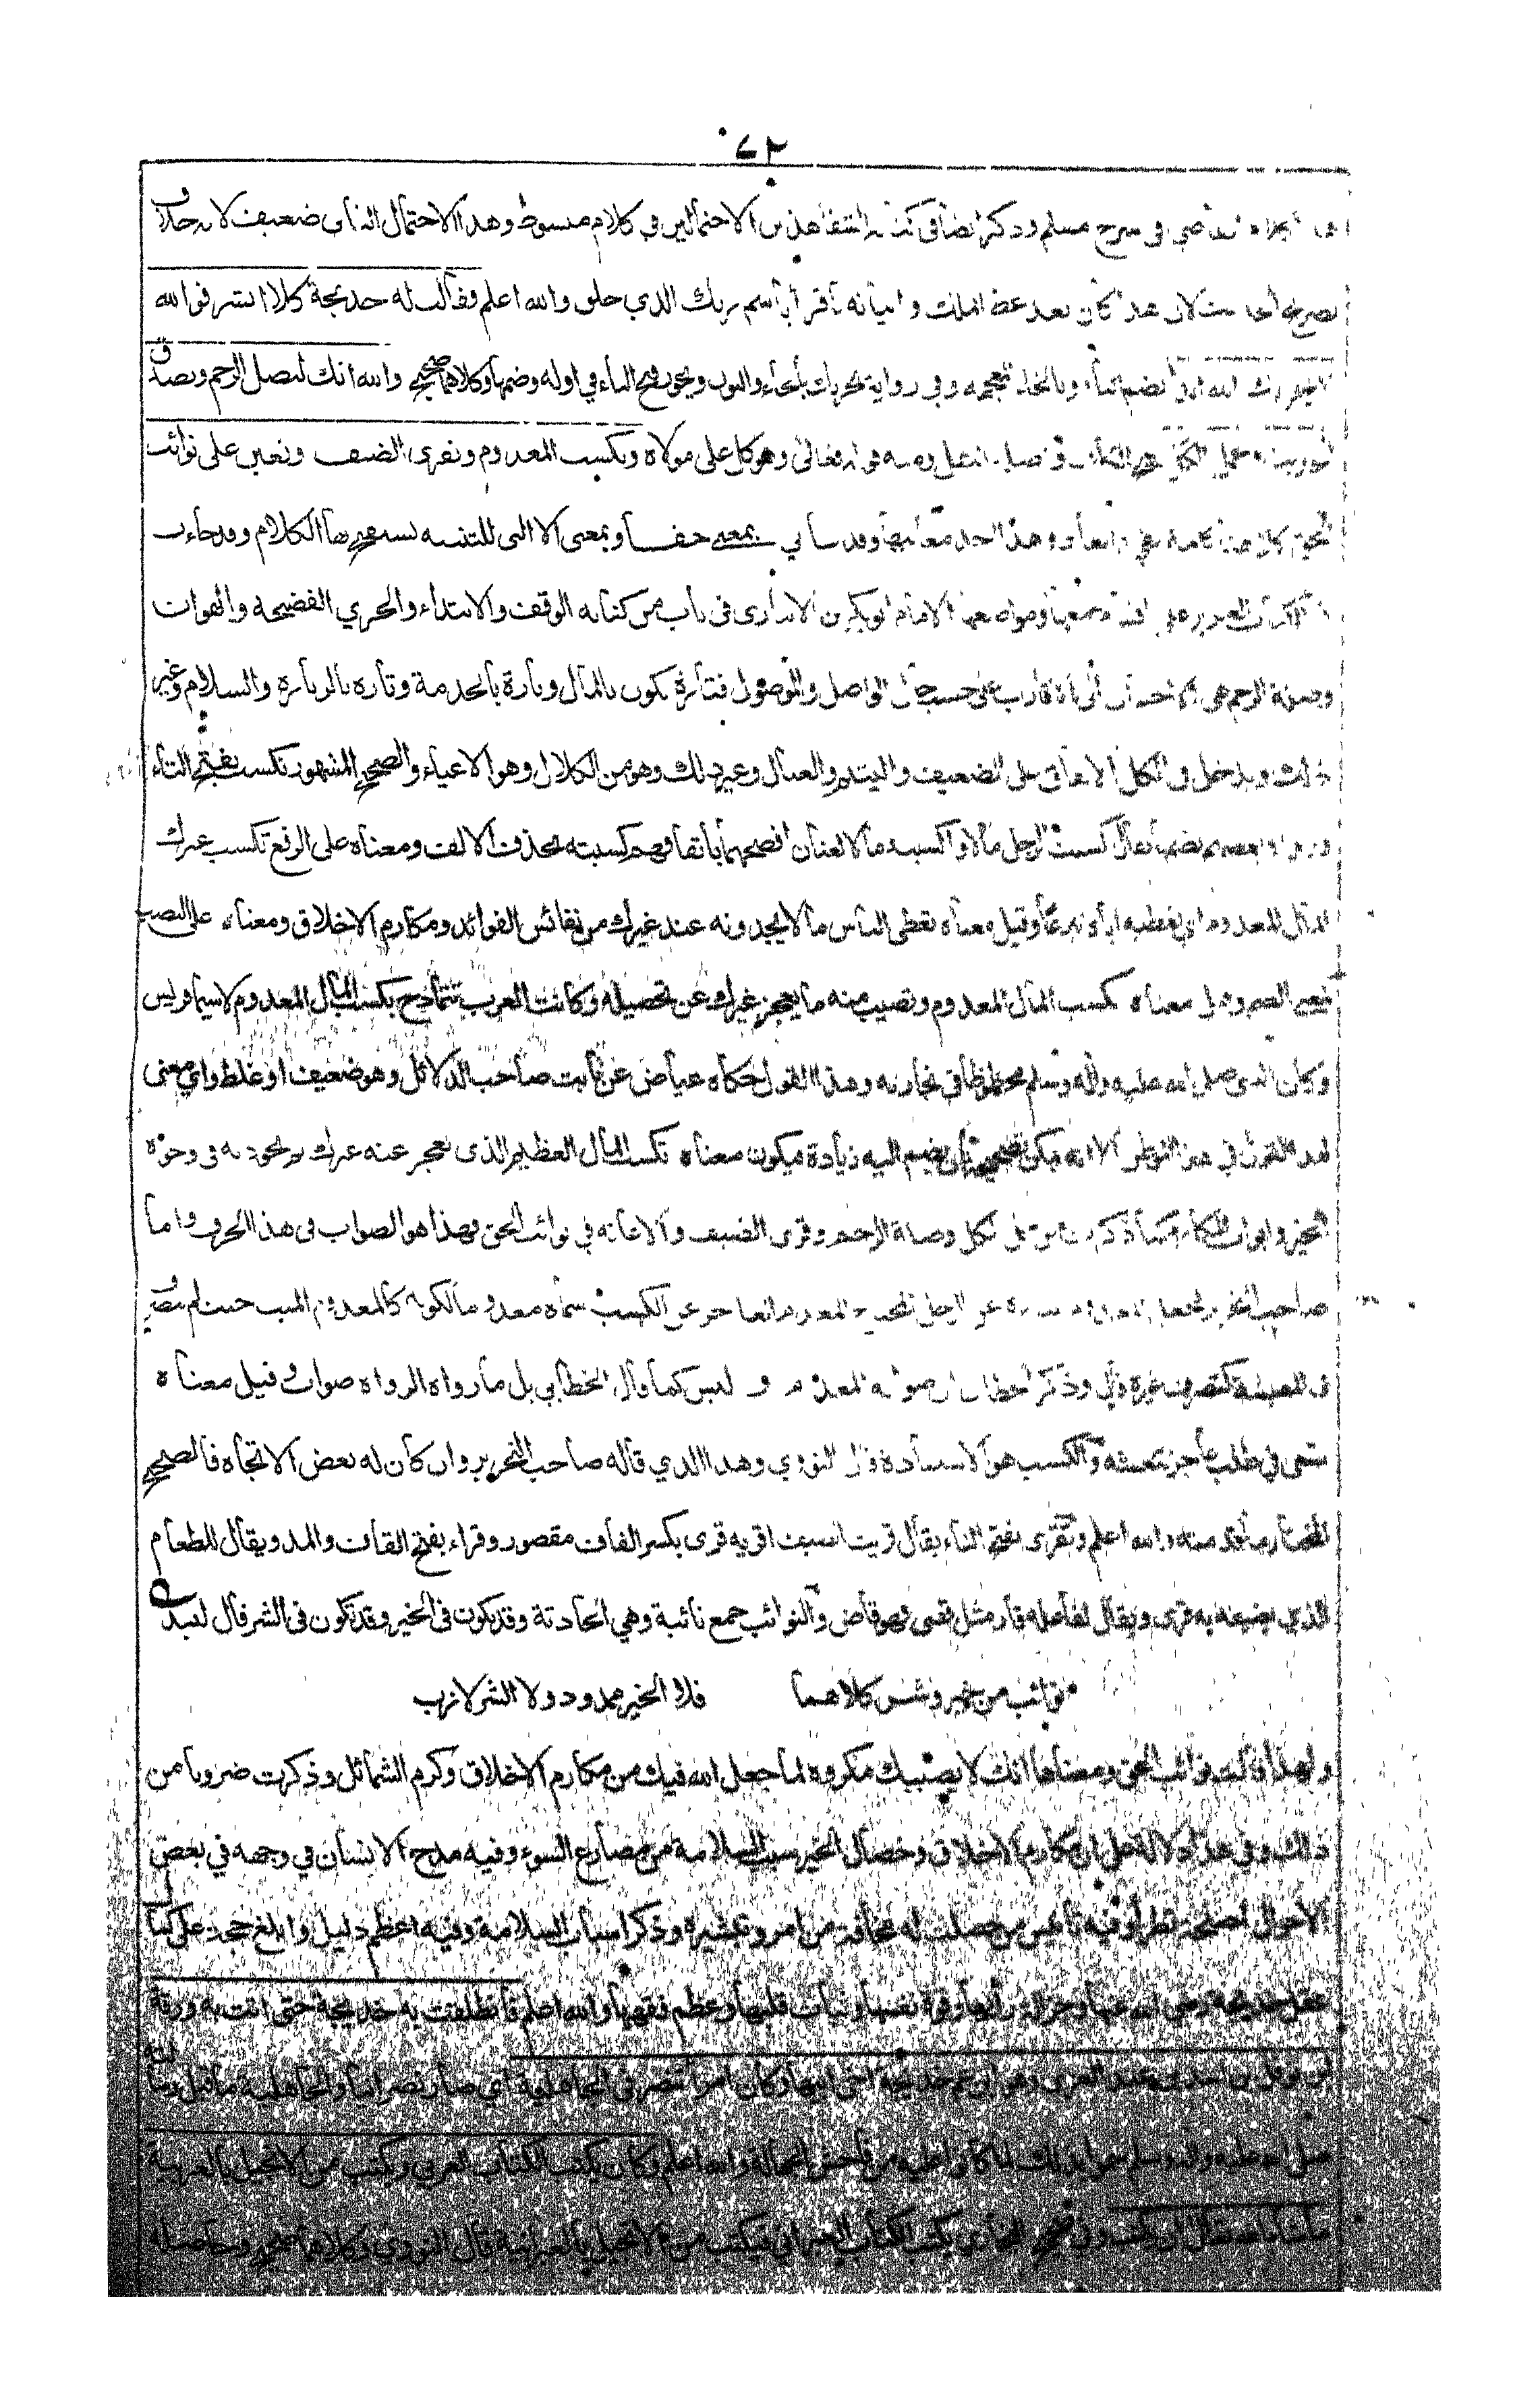 ٠٧٢
في شرح مسلم وذكر ايضا في كتابه الشفا هذين الاحتمالين في كلام مبسوط وهذا الاحتمال الثاني ضعيف لانه خلاف
لان هذا كان بعد غط الملك واتيانه باقرأ باسم ربك الذي خلق والله اعلم وقالت له خديجة كلا ابشر فوالله
بضم الياء وبالخاء المعجمة وفي رواية يحزنك بالحاء والنون ويجوز فتح الياء في اوله وضمها وكلاهما صحيح والله انك لتصل الرحم وتصدق
الحديث وتحمل الكل ومنه قوله تعالى وهو كل على مولاه وتكسب المعدوم وتقري الضيف وتعين على نوائب
الحق كلا هنا كلمة وهذا احد معانيها وقد تأتي بمعنى حقا وبمعنى الا التي للتنبيه يستفتح بها الكلام وقد جاءت
الامام ابو بكر بن الانباري في باب من كتابه الوقف والابتداء والخزي الفضيحة والهوان
وصلة الرحم هي الاحسان الى الاقارب على حسب حال الواصل والموصول فتارة يكون بالمال وتارة بالخدمة وتارة بالزيارة والسلام وغير
ذلك ويدخل في الكل الانفاق على الضعيف واليتيم والعيال وغير ذلك وهو من الكلال وهو الاعياء والصحيح المشهور تكسب بفتح التاء
ورواه بعضهم بضمها يقال كسبت الرجل مالا واكسبته مالا لغتان افصحهما باتفاقهم كسبته بحذف الالف ومعناه على الرفع تكسب غيرك
المال المعدوم اي تعطيه اياه تبرعا وقيل معناه تعطي الناس ما لا يجدونه عند غيرك من نفائس الفوائد ومكارم الاخلاق ومعناه على النصب
معناه تكسب المال المعدوم وتصيب منه ما يعجز غيرك عن تحصيله وكانت العرب تتمادح بكسب المال المعدوم لا سيما قريش
وكان النبي صلى الله عليه وآله وسلم محظوظا في تجارته وهذا القول حكاه عياض عن ثابت صاحب الدلائل وهو ضعيف او غلط واي معنى
لهذا القول في هذا الموطن الا انه يمكن تصحيحه بان يضم اليه زيادة فيكون معناه تكسب المال العظيم الذي يعجز عنه غيرك ثم تجود به في وجوه
الخير وابواب المكارم كما ذكرت من حمل الكل وصلة الرحم وقرى الضيف والاعانة في نوائب الحق فهذا هو الصواب في هذا الحرف واما
صاحب التحرير عن الرجل المحتاج المعدم العاجز عن الكسب سماه معدوما لكونه كالمعدوم الميت حيث لم يتصرف
في المعيشة كتصرف غيره قال وذكر الخطابي ان صوابه المعدم وليس كما قال الخطابي بل ما رواه الرواة صواب وقيل معناه
تسعى في طلب عاجز تنعشه والكسب هو الاستفادة قال النووي وهذا الذي قاله صاحب التحرير وان كان له بعض الاتجاه فالصحيح
المختار ما قدمته والله اعلم وتقري بفتح التاء يقال قريت الضيف اقريه قرى بكسر القاف مقصور وقراء بفتح القاف والمد ويقال للطعام
الذي يضيفه به قرى ويقال لفاعله قار مثل قضى فهو قاض والنوائب جمع نائبة وهي الحادثة وقد يكون في الخير وقد تكون في الشر قال لبيد
نوائب من خير وشر كلاهما فلا الخير ممدود ولا الشر لازب
ولهذا قالت نوائب الحق ومعناها انك لا يصيبك مكروه لما جعل الله فيك من مكارم الاخلاق وكرم الشمائل وذكرت ضروبا من
ذلك وفي هذا دلالة على ان مكارم الاخلاق وخصال الخير سبب السلامة من مصارع السوء وفيه مدح الانسان في وجهه في بعض
الاحوال لمصلحة نظرا وفيه تأنيس من حصلت له مخافة من امر وتبشيره وذكر اسباب السلامة وفيه اعظم دليل وابلغ حجة على كمال
عقل خديجة رضي الله عنها وجزالة رأيها وقوة نفسها وثبات قلبها وعظم فقهها والله اعلم فانطلقت به خديجة حتى اتت به ورقة
ابن نوفل بن اسد بن عبد العزى وهو ابن عم خديجة اخي ابيها وكان امرأ تنصر في الجاهلية اي صار نصرانيا والجاهلية ما قبل رسالته
صلى الله عليه وآله وسلم سموا بذلك لما كانوا عليه من فاحش الجهالة والله اعلم وكان يكتب الكتاب العربي ويكتب من الانجيل بالعربية
ما شاء الله تعالى ان يكتب وفي صحيح البخاري يكتب الكتاب العبراني فيكتب من الانجيل بالعبرانية قال النووي وكلاهما صحيح وحاصله